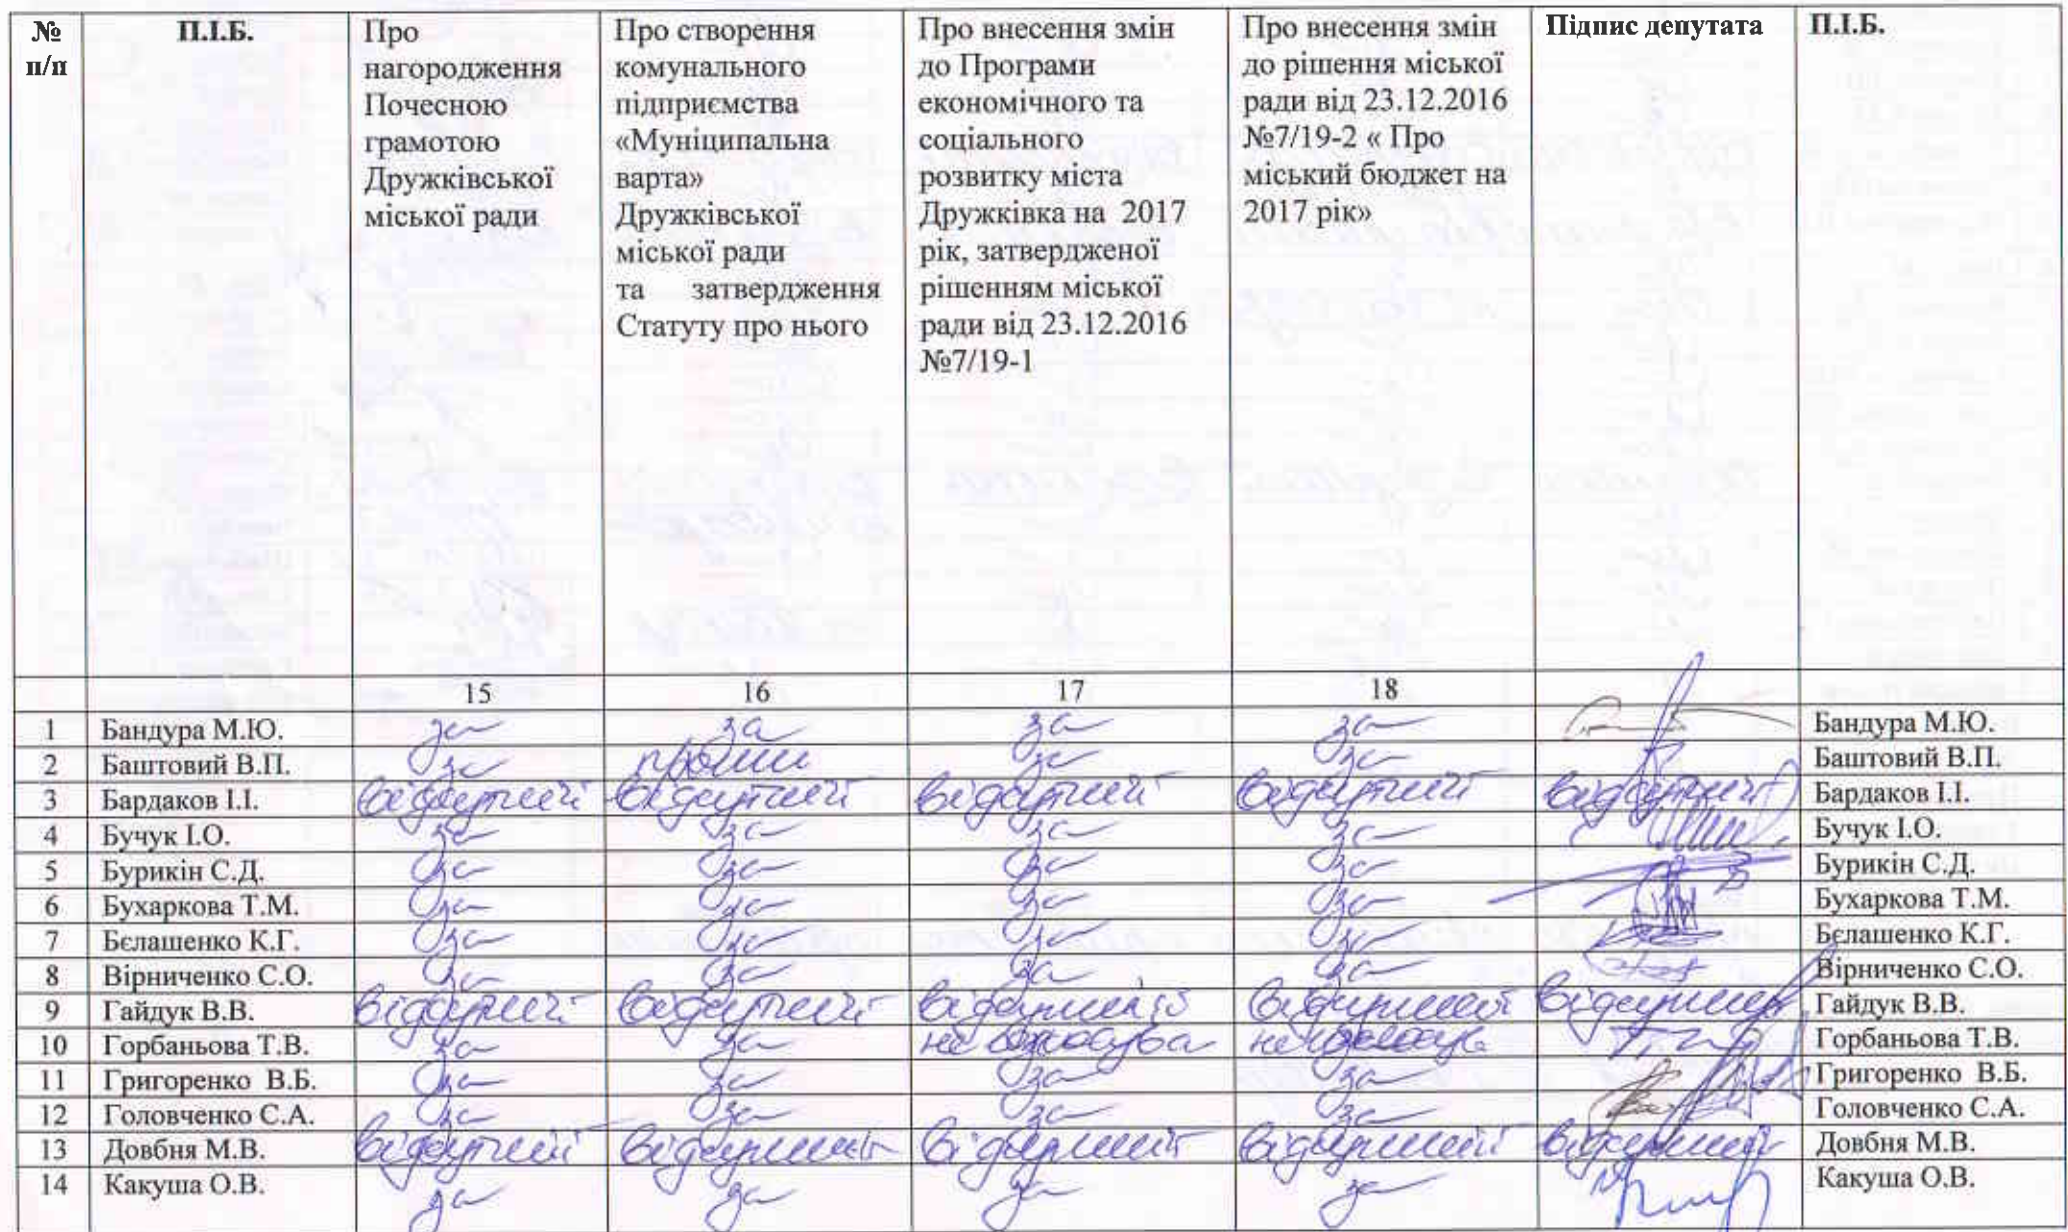 № п/п
П.І.Б.
Про нагородження Почесною грамотою Дружківської міської ради
Про створення комунального підприємства «Муніципальна варта» Дружківської міської ради та затвердження Статуту про нього
Про внесення змін до Програми економічного та соціального розвитку міста Дружківка на 2017 рік, затвердженої рішенням міської ради від 23.12.2016 №7/19-1
Про внесення змін до рішення міської ради від 23.12.2016 №7/19-2 « Про міський бюджет на 2017 рік»
Підпис депутата
П.І.Б.
15 16 17 18
1 Бандура М.Ю. за за за за Бандура М.Ю.
2 Баштовий В.П. за проти за за Баштовий В.П.
3 Бардаков І.І. відсутній відсутній відсутній відсутній відсутній Бардаков І.І.
4 Бучук І.О. за за за за Бучук І.О.
5 Бурикін С.Д. за за за за Бурикін С.Д.
6 Бухаркова Т.М. за за за за Бухаркова Т.М.
7 Бєлашенко К.Г. за за за за Бєлашенко К.Г.
8 Вірниченко С.О. за за за за Вірниченко С.О.
9 Гайдук В.В. відсутній відсутній відсутній відсутній відсутній Гайдук В.В.
10 Горбаньова Т.В. за за не не Горбаньова Т.В.
11 Григоренко В.Б. за за за за Григоренко В.Б.
12 Головченко С.А. за за за за Головченко С.А.
13 Довбня М.В. відсутній відсутній відсутній відсутній відсутній Довбня М.В.
14 Какуша О.В. за за за за Какуша О.В.